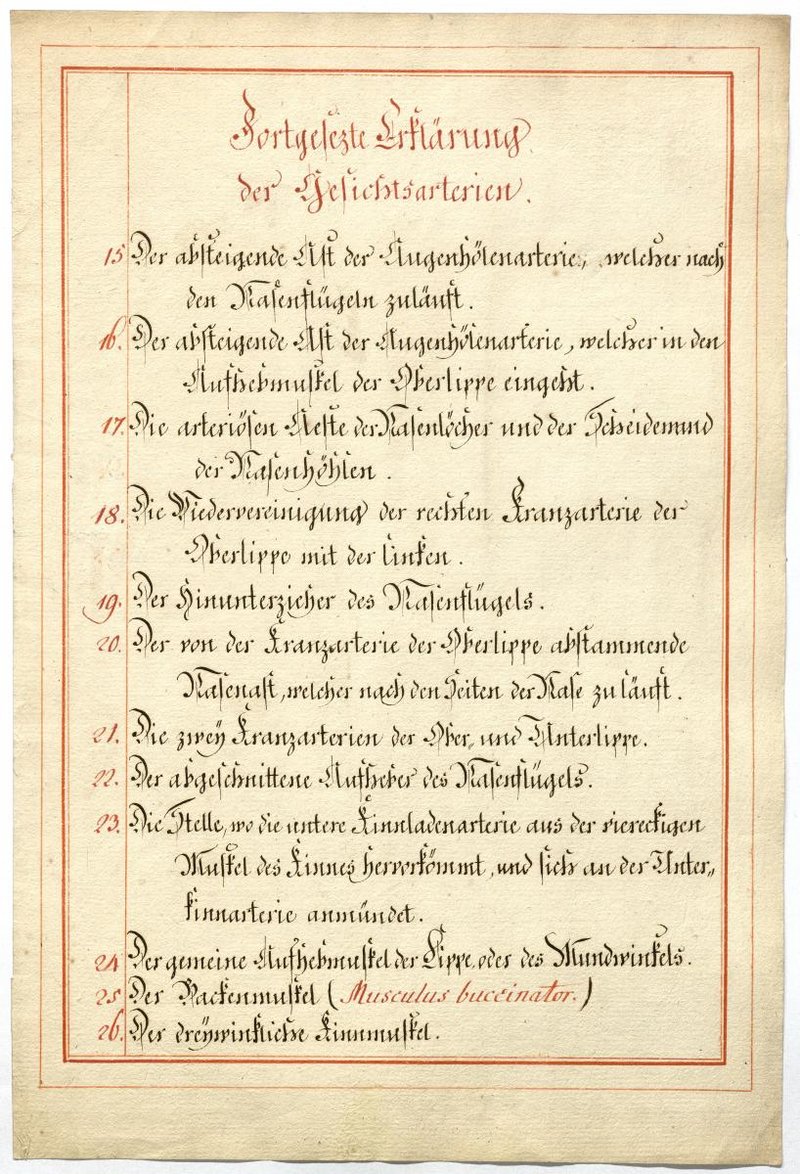 Fortgesezte Erklärung
der Gesichtsarterien.
15 Der absteigende Ast der Augenhölenarterie, welcher nach
den Nasenflügeln zuläuft.
16. Der absteigende Ast der Augenhölenarterie, welcher in den
Aufhebmuskel der Oberlippe eingeht.
17. Die arteriösen Aeste der Nasenlöcher und der Scheidewand
der Nasenhöhlen.
18. Die Wiedervereinigung der rechten Kranzarterie der
Oberlippe mit der linken.
19. Der Hinunterzieher des Nasenflügels.
20. Der von der Kranzarterie der Oberlippe abstammende
Nasenast, welcher nach den Seiten der Nase zu läuft.
21. Die zwey Kranzarterien der Ober- und Unterlippe.
22. Der abgeschnittene Aufheber des Nasenflügels.
23. Die Stelle, wo die untere Kinnladenarterie aus der viereckigen
Muskel des Kinnes hervorkömmt, und sich an der Unter-
kinnarterie anmündet.
24 Der gemeine Aufhebmuskel der Lippe, oder des Mundwinkels.
25 Der Backenmuskel (Musculus buccinator.)
26. Der dreywinkliche Kinnmuskel.